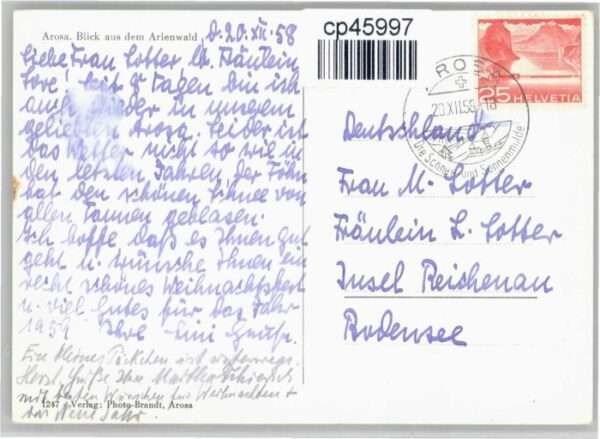 Arosa. Blick aus dem Arlenwald
d. 20. XII. 58
Liebe Frau Cotter u. Fräulein
Lore! Seit 8 Tagen bin ich
auch wieder in unserm
geliebten Arosa. Leider ist
das Wetter nicht so wie in
den letzten Jahren, der Föhn
hat den schönen Schnee von
allen Tannen geblasen.
Ich hoffe daß es Ihnen gut
geht u. wünsche Ihnen ein
recht schönes Weihnachtsfest
u. viel Gutes für das Jahr
1959 Ihre
Ein kleines Päckchen ist unterwegs.
mit besten Wünschen für Weihnachten +
das Neue Jahr.
1247 Verlag: Photo-Brandt, Arosa
cp45997
AROSA
20.XII.58-18
Die Sonnen- und Sonnenhalde
25 HELVETIA
Deutschland
Frau M. Cotter
Fräulein L. Cotter
Insel Reichenau
Bodensee